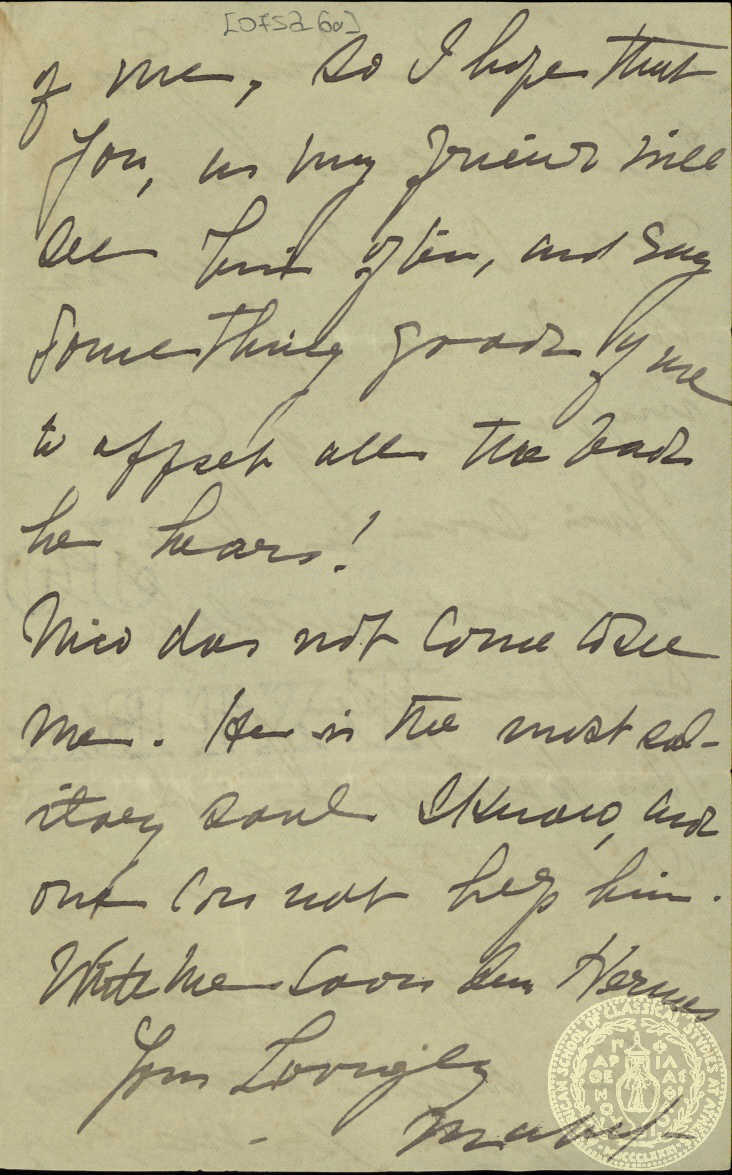 of me, so I hope that
you, as my friend will
see him often, and say
something good of me
to offset all the bad
he hears!
Nico does not come to see
me. He is the most sol-
itary soul I know, and
one can not help him.
Write me soon dear Hermes
Yours Lovingly
Mabel
AMERICAN SCHOOL OF CLASSICAL STUDIES AT ATHENS
ΠΑΡΘΕΝΟΥ ΦΙΛΑΣ
MDCCCLXXXI